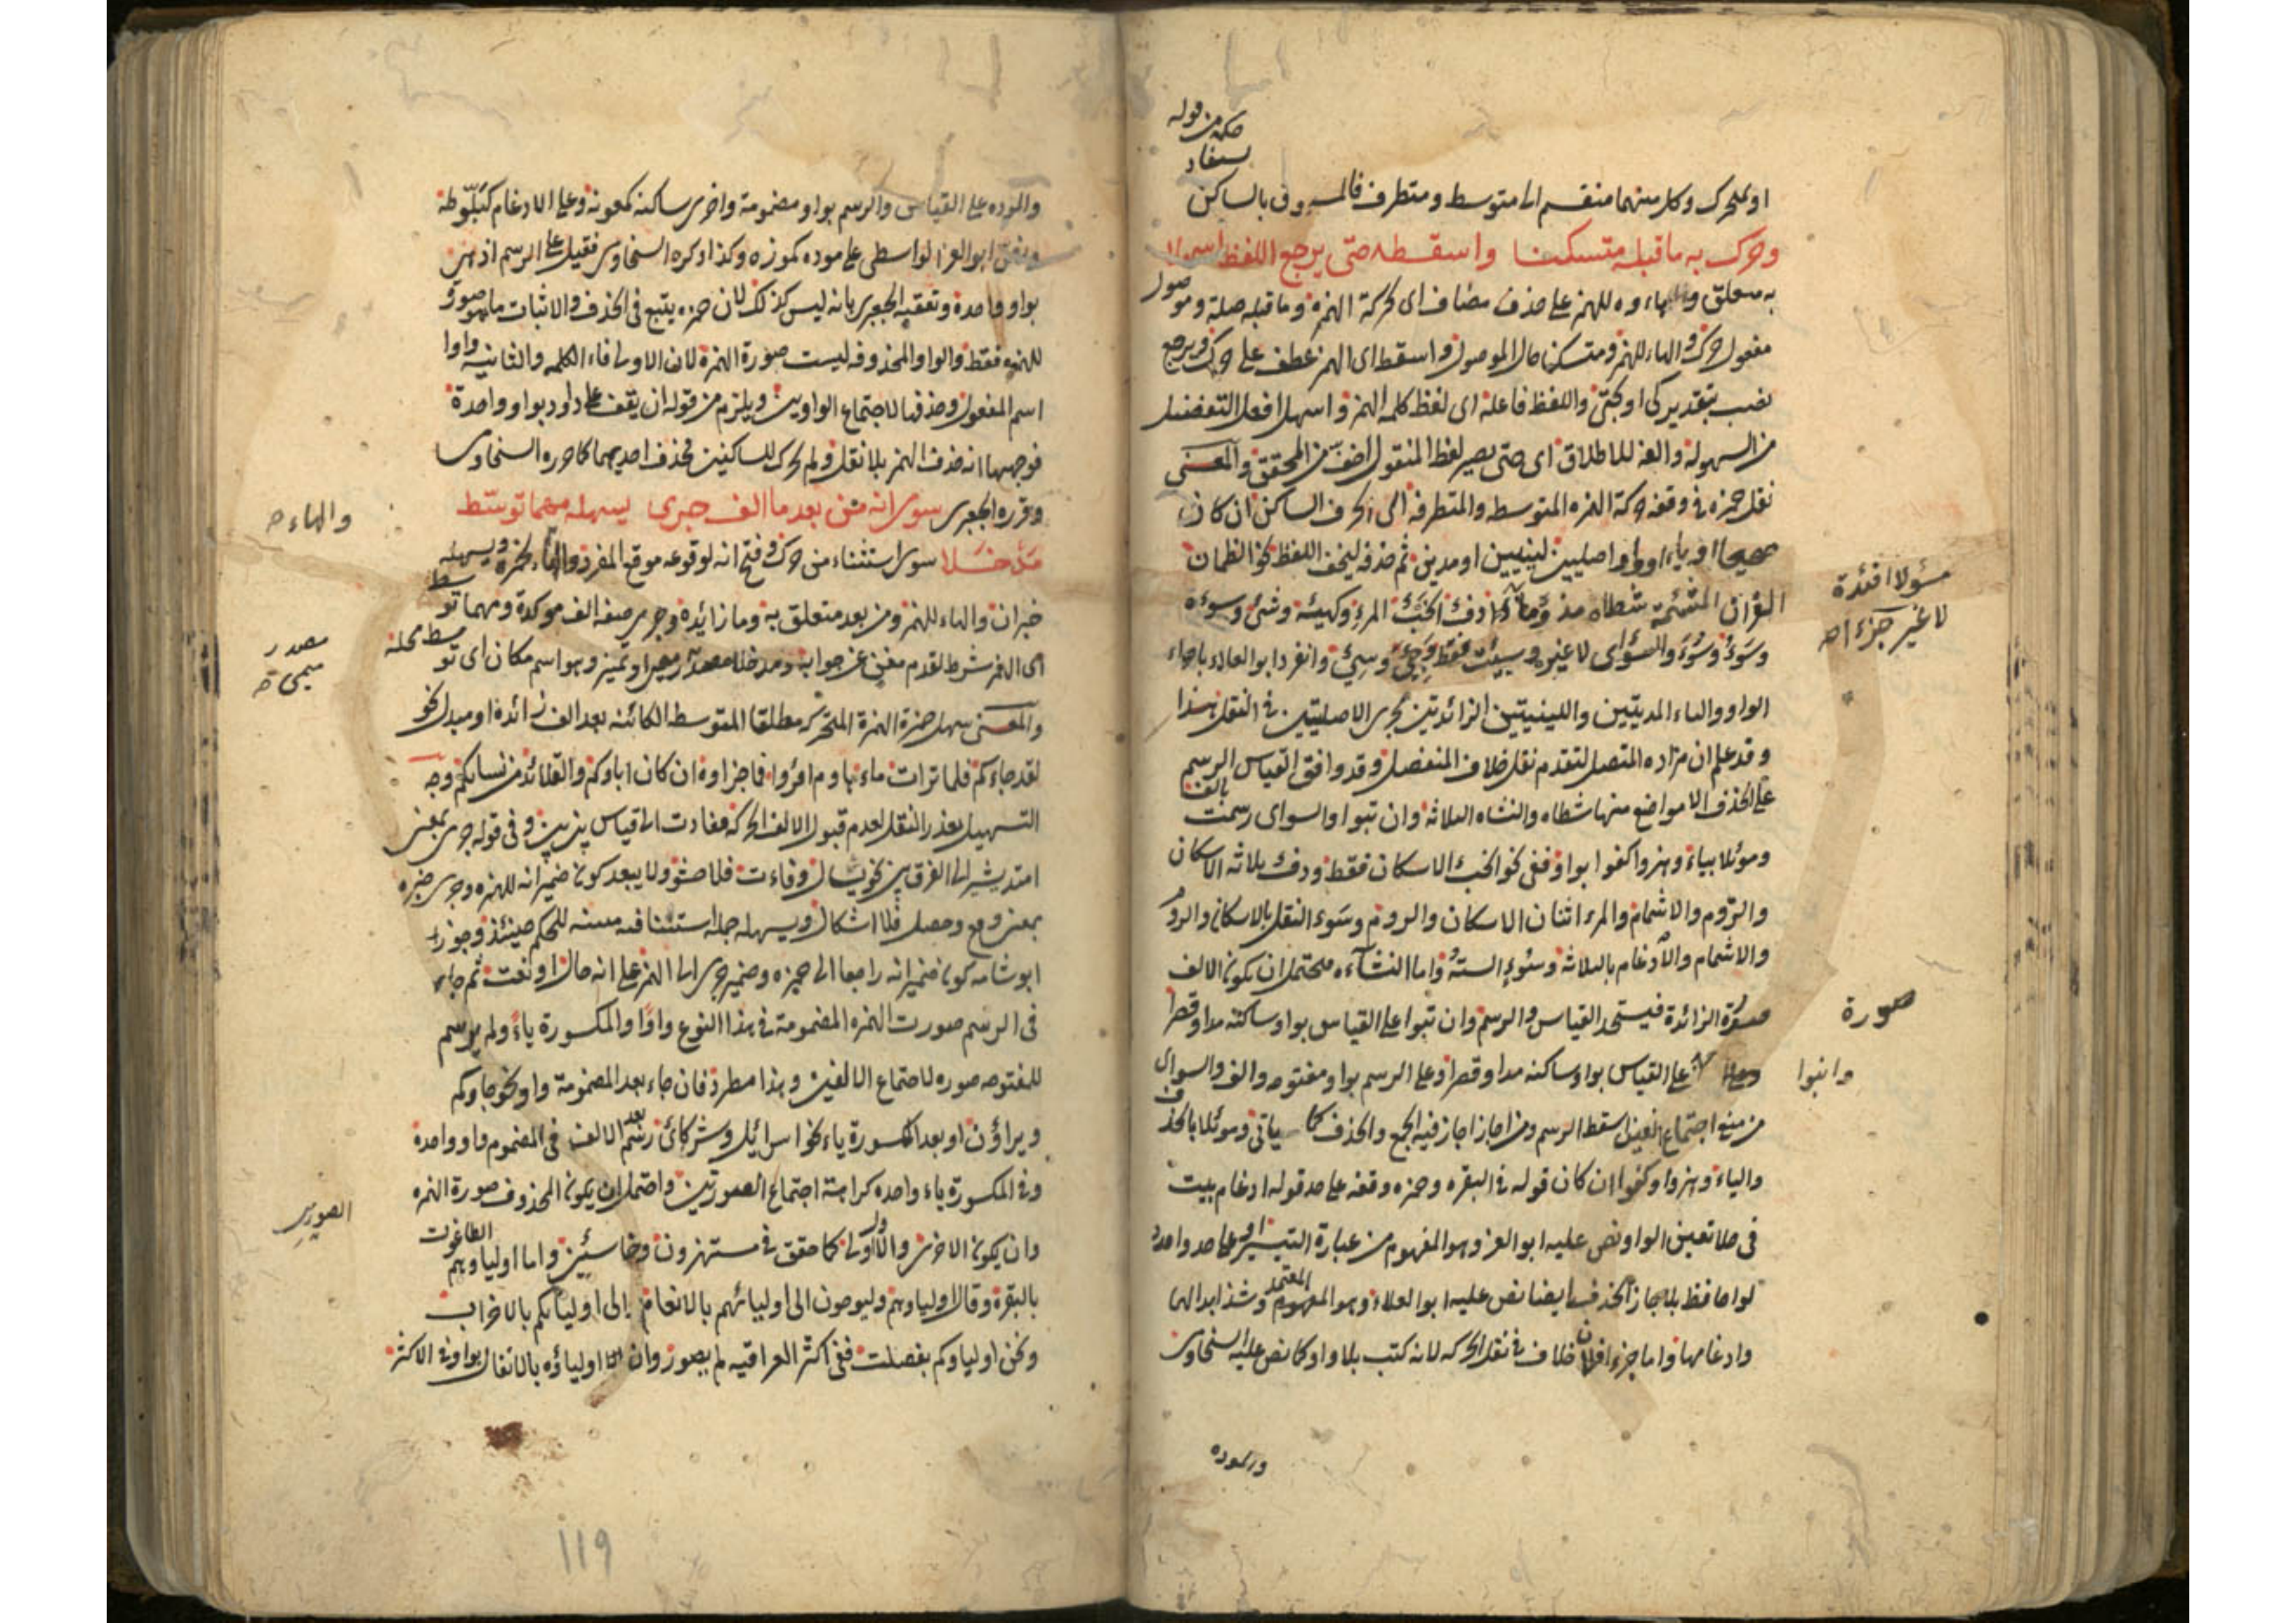 حكمه من قوله
يستفاد
او لمتحرك وكل منهما منقسم الى متوسط ومتطرف فالمسبوق بالساكن
وحرك به ما قبله متسكنا واسقطه حتى يرجع اللفظ اسهلا
به متعلق والهاء للهمز على حذف مضاف اى بحركة الهمزة وما قبله صلة وموصول
مفعول حرك والهاء للهمز ومتسكنا حال الموصول واسقط اى الهمز عطف على حرك ويرجع
نصب بتقدير كى او بحتى واللفظ فاعله اى لفظ كلمة الهمز واسهل افعل التفضيل
من السهولة والفه للاطلاق اى حتى يصير لفظ المنقول اخف من المحقق والمعنى
نقل حمزه فى وقفه حركة الهمزه المتوسطه والمتطرفه الى الحرف الساكن ان كان
صحيحا او ياء او واوا اصليين لينيين او مديين ثم حذفه ليخف اللفظ نحو الظمان
القران المشئمة شطاه دفء الخبء المرء وكهيئة وشئ وسوءه
مسؤلا افئدة
لا غير جزءا صح
وسوء والسواى لا غير وسيئت فقط وجئ وسئ وانفرد ابو العلاء باجراء
الواو والياء المديتين واللينيتين الزائدتين مجرى الاصليتين فى النقل هذا
وقد علم ان مراده المتصل لتقدم نقل خلاف المنفصل وقد وافق القياس الرسم
على الحذف الا مواضع منها شطاه والنشاه الثلاثة وان تبوا والسواى رسمت بالف
وموئلا بياء وهزوا كفوا بواو ففى نحو الخبء الاسكان فقط ودفء ثلاثة الاسكان
والروم والاشمام والمرء اثنان الاسكان والروم وسوء النقل بالاسكان والروم
والاشمام والادغام بالثلاثة وسوء الستة واما النشاة فيحتمل ان يكون الالف
صورة الزائدة فيستحد القياس والرسم وان تبوا على القياس بواو ساكنه مدا وقصرا
صورة
على القياس بواو ساكنه مدا وقصرا وعلى الرسم بواو مفتوحه والف والسواى
من منع اجتماع الفين اسقط الرسم ومن اجاز اجاز فيه الجمع والحذف كما ياتى وموئلا بالحذف
والياء وهزوا وكفوا ان كان قوله فى البقره وحمزه وقفه على حد قوله ادغام بيت
فى حلا تعين الواو ونص عليه ابو العز وهو المفهوم من عبارة التيسير او على حد واحده
لواحافظ بلا جاز الحذف ايضا نص عليه ابو العلاء وهو المعتمد وشذ ابدالهما
وادغامها واما جزءا فلا خلاف فى نقل الحركه لانه كتب بلا واو كما نص عليه السخاوى
والموده
والموده على القياس والرسم بواو مضمومة واخرى ساكنه كمعونة وعلى الادغام كبلوطة
ونص ابو العز الواسطى على موده كموزه وكذا ذكره السخاوى فقيل على الرسم اذ هى
بواو واحدة وتعقبه الجعبرى بانه ليس كذلك لان حمزه يتبع فى الحذف والاثبات ما هو صورة
للهمزه فقط والواو المحذوفه ليست صورة الهمزة لان الاولى فاء الكلمه والثانيه واوا
اسم المفعول وحذفها لاجتماع الواوين ويلزم من قوله ان يقف على داود بواو واحدة
فوجهها انه حذف الهمز بلا نقل ولم يحرك للساكنين فحذف احديهما كما حرره السخاوى
وقرره الجعبرى سوى انه من بعد ما الف جرى يسهله مهما توسط
مدخلا سوى استثناء من حرك وفتح انه لوقوعه موقع المفرد والهاء لحمزة ويسهله
والهاء صح
خبر ان والهاء للهمز ومن بعد متعلق به وما زائدة وجرى صفة الف موكدة ومهما توسط
اى الهمز شرط لتقدم مغن عن جوابه ومدخلا مصدر ميمى او تميز وهو اسم مكان اى توسط محله
مصدر
ميمى صح
والمعنى سهل حمزة الهمزة المتحركه مطلقا المتوسطه الكائنه بعد الف زائدة او مبدل نحو
لقد جاءكم فلما تراءت ماء هاوم اقرؤا فاجزاوه ان كان اباوكم والقلائد من نسائكم وجه
التسهيل تعذر النقل لعدم قبول الالف الحركه فعادت الى قياس بين بين وفى قوله جرى بمعنى
امتد يشير الى الفرق بين نحو يشا وفاءت فلا حشو ولا يبعد كون ضمير انه للهمزه وجرى خبره
بمعنى وقع وحصل فلا اشكال ويسهله جمله استئنافيه مبينه للحكم حينئذ وجوز
ابو شامه كون ضمير انه راجعا الى حمزه وضمير جرى الى الهمز على انه حال او نعت ثم جاء
فى الرسم صورت الهمزه المضمومة فى هذا النوع واوا والمكسورة ياء ولم يرسم
للمفتوحه صوره لاجتماع الالفين وهذا مطرد فان جاء بعد المضمومة واو نحو جاوكم
ويراؤن او بعد المكسورة ياء نحو اسرائل وشركائى رسم بعد الالف فى المضموم واو واحدة
وفى المكسورة ياء واحده كراهة اجتماع الصورتين واحتمل ان يكون المحذوف صورة الهمزه
الصورتين
وان يكون الاخرى والاولى كما حقق فى مستهزون وخاسئين واما اولياوهم الطاغوت
بالبقرة وقال اولياوهم وليوحون الى اوليائهم بالانعام الى اوليائكم بالاحزاب
ونحن اولياوكم بفصلت ففى اكثر العراقيه لم يصور وان اولياؤه بالانفال بواو فى الاكثر
119